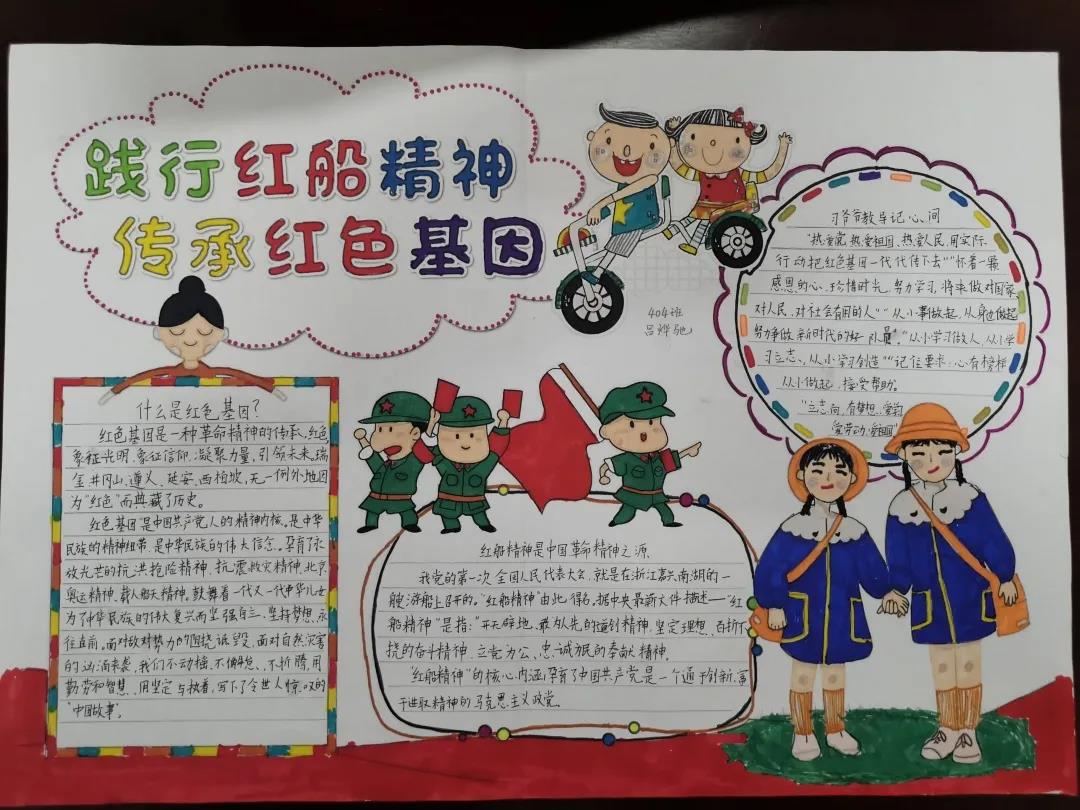 践行红船精神
传承红色基因
404班
吕烨驰
习爷爷教导记心间
"热爱党,热爱祖国,热爱人民,用实际
行动把红色基因一代代传下去""怀着一颗
感恩的心,珍惜时光,努力学习,将来做对国家,
对人民,对社会有用的人""从小事做起,从身边做起
努力争做新时代的好队员""从小学习做人,从小学
习立志,从小学习创造""记住要求:心有榜样
从小做起,接受帮助。
"立志向,有梦想,爱学
爱劳动,爱祖国"
什么是红色基因?
红色基因是一种革命精神的传承,红色
象征光明,象征信仰,凝聚力量,引领未来。瑞
金,井冈山,遵义,延安,西柏坡,无一例外地因
为"红色"而典藏了历史。
红色基因是中国共产党人的精神内核。是中华
民族的精神纽带,是中华民族的伟大信念。孕育了永
放光芒的抗洪抢险精神,抗震救灾精神,北京
奥运精神,载人航天精神。鼓舞着一代又一代中华儿女
为了中华民族的伟大复兴而坚强自立、坚持梦想、永
往直前。面对敌对势力的围挠诋毁,面对自然灾害
的汹涌来袭,我们不动摇、不懈怠、不折腾,用
勤劳和智慧、用坚定与执着,写下了令世人惊叹的
"中国故事"。
红船精神是中国革命精神之源
我党的第一次全国人民代表大会,就是在浙江嘉兴南湖的一
艘游船上召开的。"红船精神"由此得名,据中央最新文件描述——"红
船精神"是指:"开天辟地、敢为人先的首创精神,坚定理想、百折不
挠的奋斗精神,立党为公、忠诚为民的奉献精神。
"红船精神"的核心内涵,孕育了中国共产党是一个通于创新,富
于进取精神的马克思主义政党。